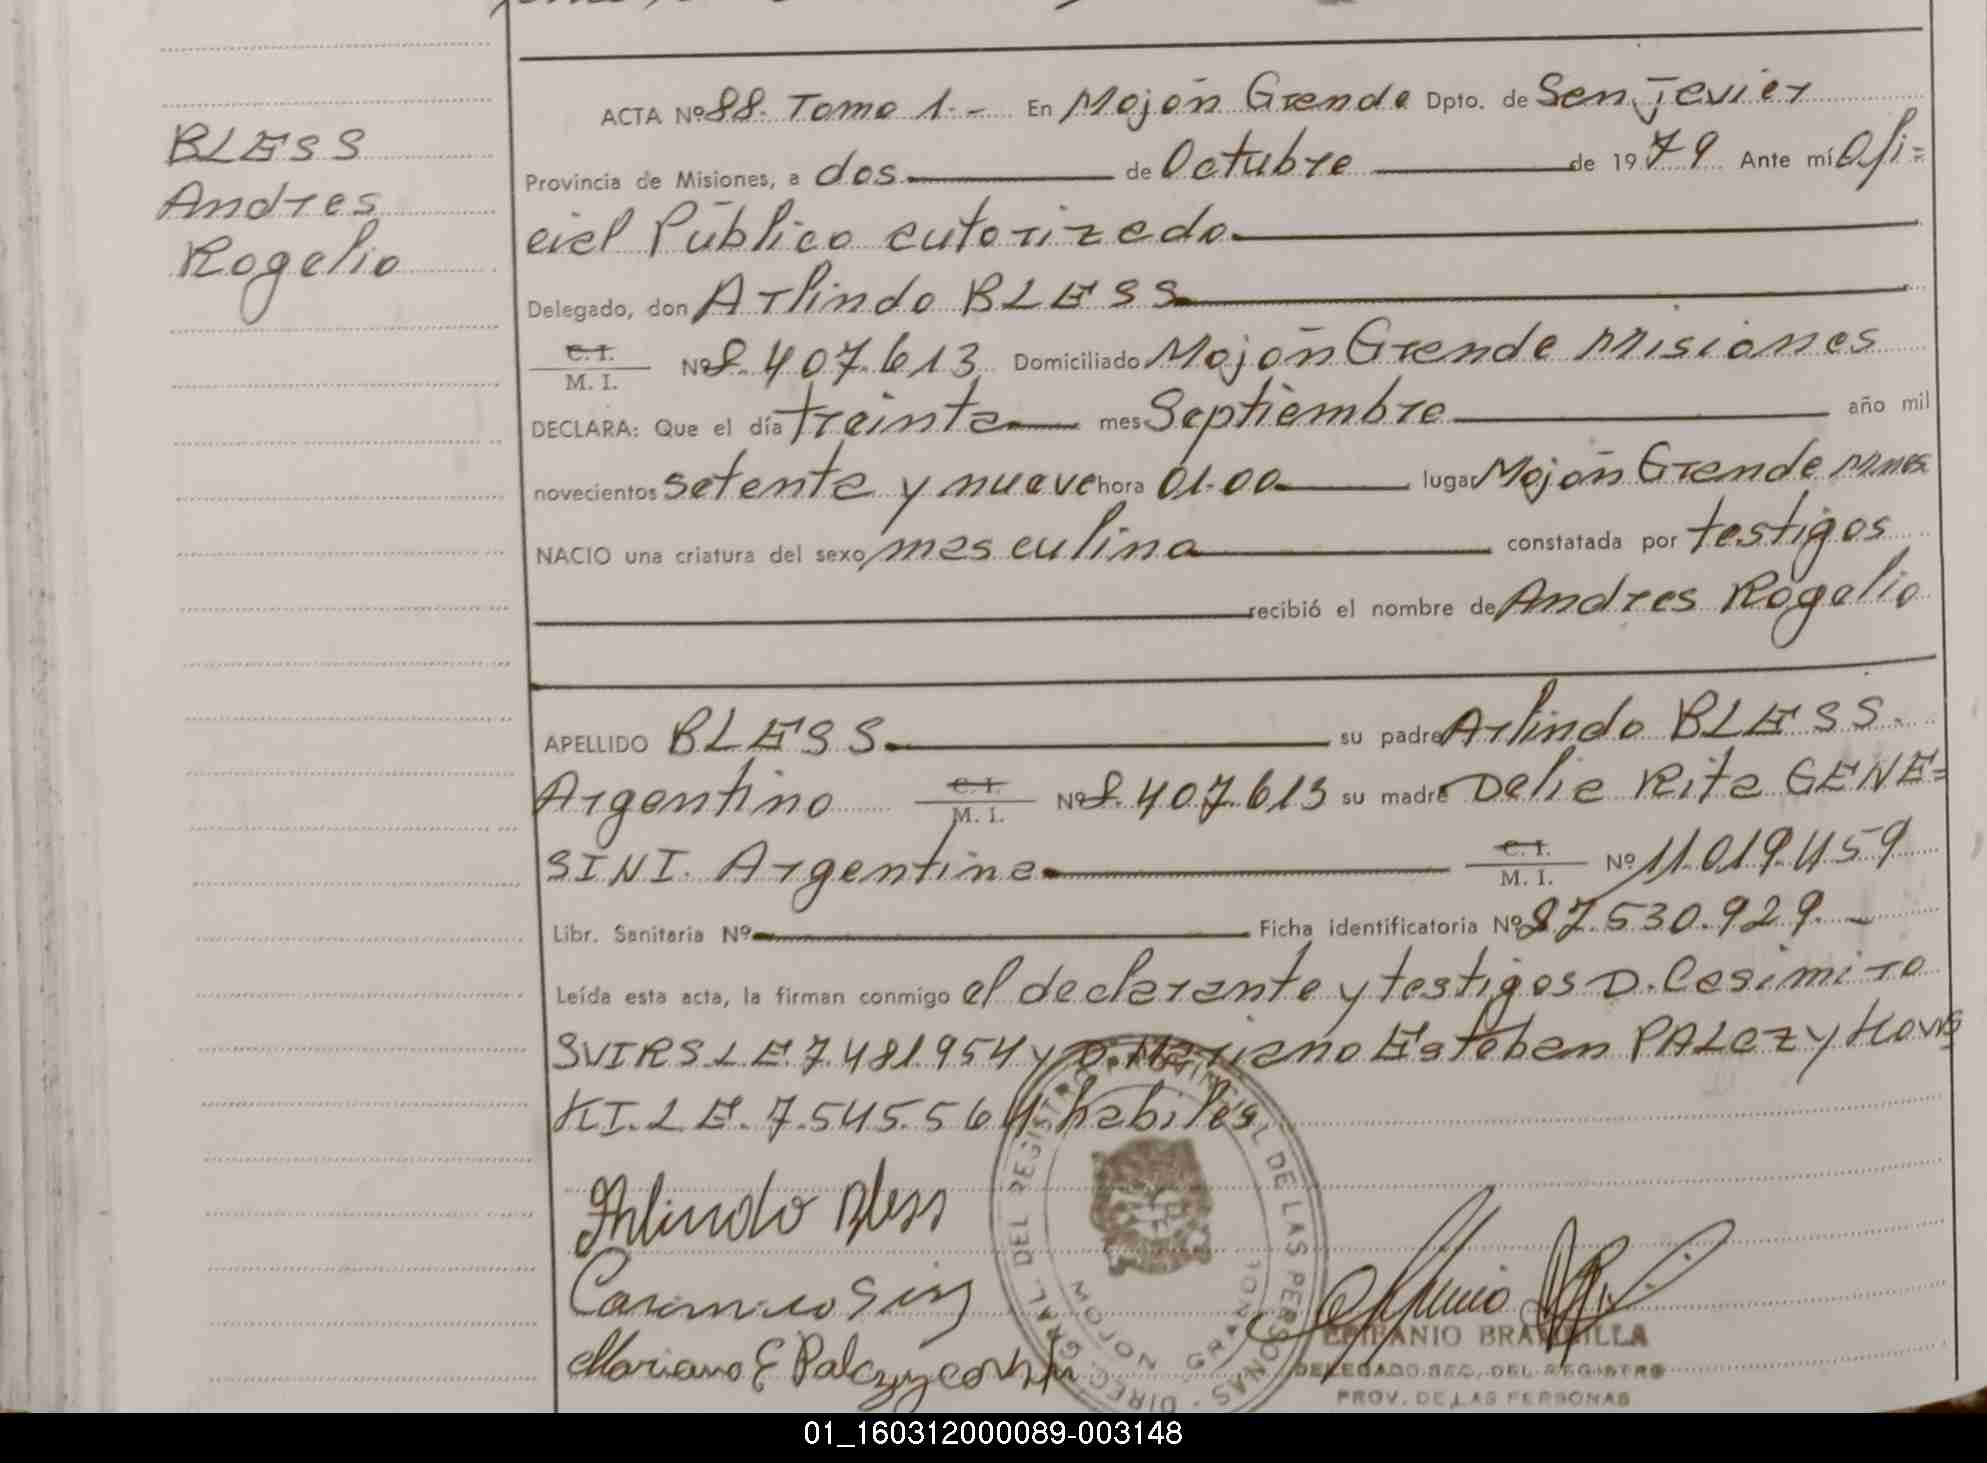 BLESS
Andres
Rogelio
ACTA Nº 88. Tomo 1.- En Mojón Grande Dpto. de San Javier
Provincia de Misiones, a dos de Octubre de 1979 Ante mí Ofi=
cial Público autorizado
Delegado, don Arlindo BLESS
C. I.
M. I. Nº 8.407.613 Domiciliado Mojón Grande Misiones
DECLARA: Que el día treinta mes Septiembre año mil
novecientos setenta y nueve hora 01.00 lugar Mojón Grande Mnes
NACIO una criatura del sexo masculino constatada por testigos
recibió el nombre de Andres Rogelio
APELLIDO BLESS su padre Arlindo BLESS.
Argentino C. I. M. I. Nº 8.407.613 su madre Delia Rita GENE=
SINI. Argentina C. I. M. I. Nº 11.019.459
Libr. Sanitaria Nº Ficha identificatoria Nº 87.530.929.-
Leída esta acta, la firman conmigo el declarante y testigos D. Casimiro
SVIRS L E. 7.481.954 y D. Mariano Esteban PALCZYKOWS
KI. L. E. 7.545.564 habiles
Arlindo Bless
Casimiro
Mariano E Palczycovski
DIRECC. GRAL. DEL REGISTRO PROVINCIAL DE LAS PERSONAS
MOJON GRANDE
EPIFANIO BRAÑUILLA
DELEGADO SEC. DEL REGISTRO
PROV. DE LAS PERSONAS
01_160312000089-003148